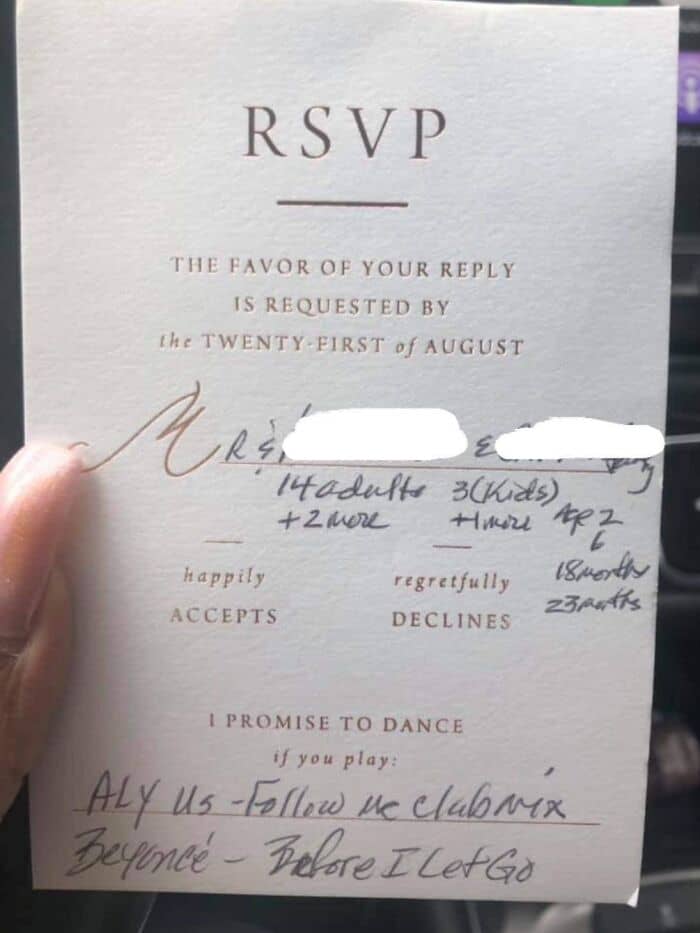 RSVP
THE FAVOR OF YOUR REPLY
IS REQUESTED BY
the TWENTY-FIRST of AUGUST
MR &
&
14 adults 3(Kids)
+2 more +1 more Age 2
6
18 months
23 months
happily regretfully
ACCEPTS DECLINES
I PROMISE TO DANCE
if you play:
ALY Us - Follow me club mix
Beyoncé - Before I Let Go